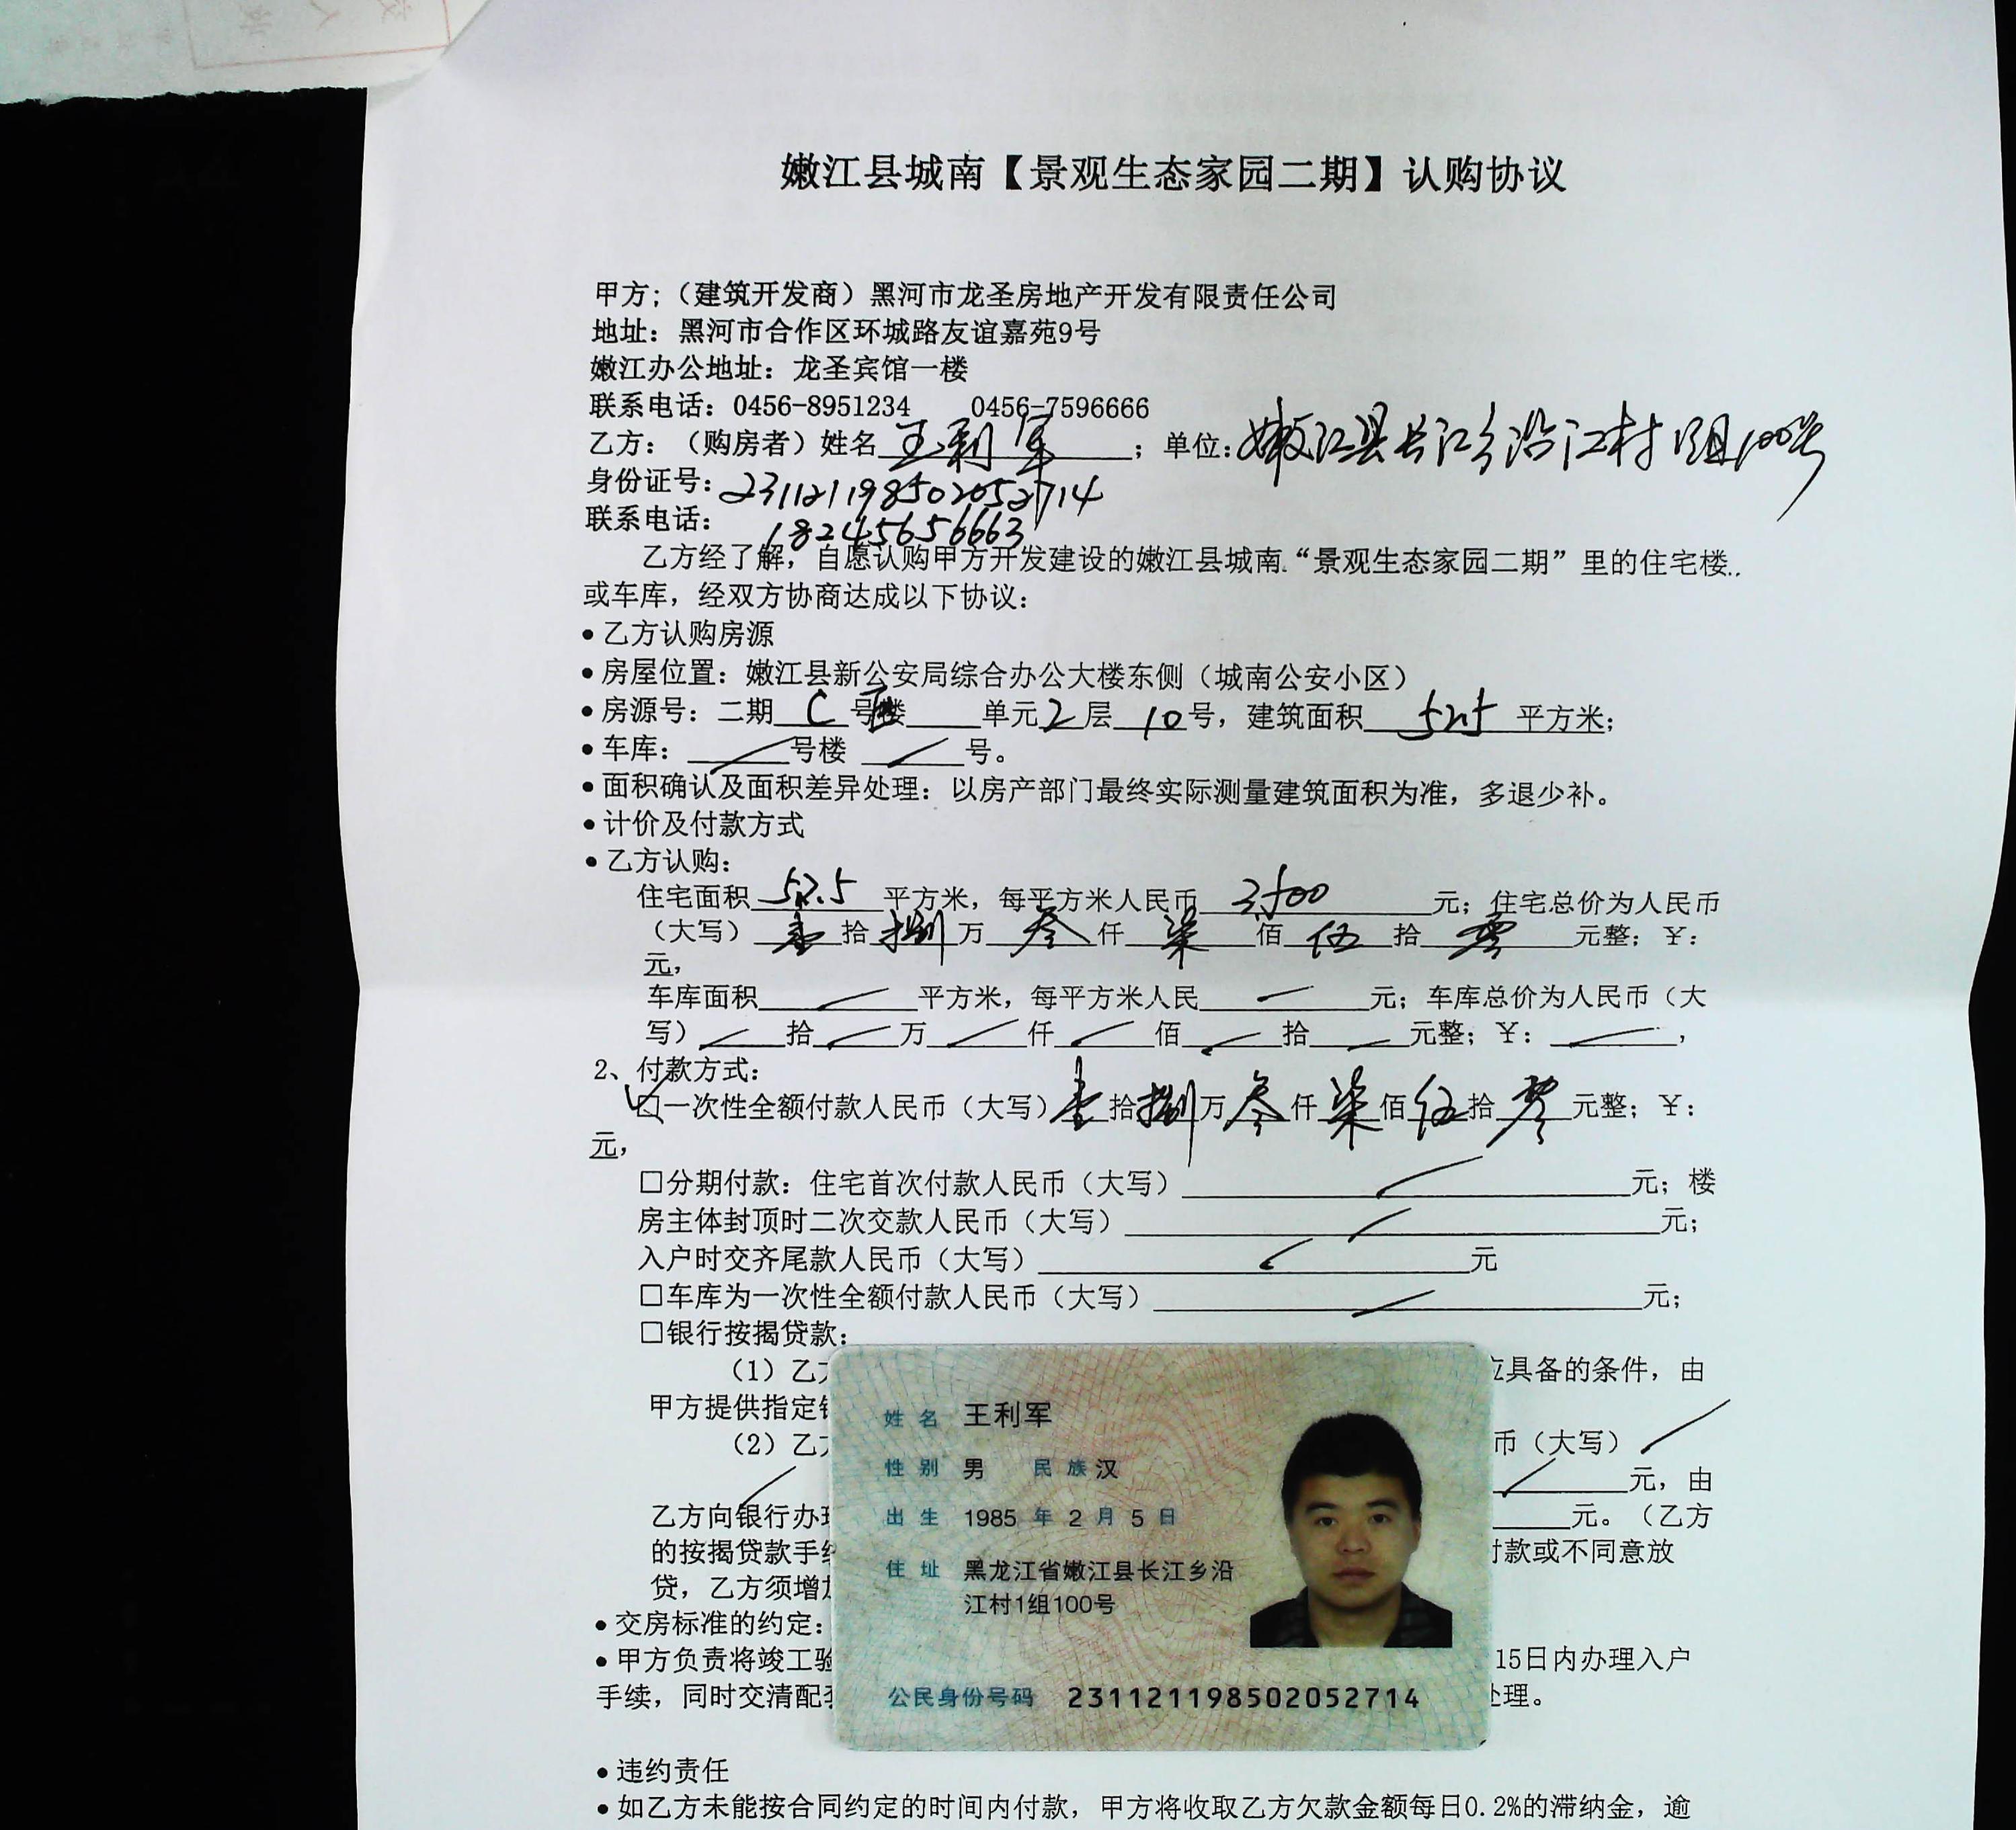 嫩江县城南【景观生态家园二期】认购协议
甲方;（建筑开发商）黑河市龙圣房地产开发有限责任公司
地址：黑河市合作区环城路友谊嘉苑9号
嫩江办公地址：龙圣宾馆一楼
联系电话：0456-8951234 0456-7596666
乙方：（购房者）姓名王利军；单位:嫩江县长江乡沿江村1组100号
身份证号：231121198502052714
联系电话：18245656663
乙方经了解，自愿认购甲方开发建设的嫩江县城南“景观生态家园二期”里的住宅楼
或车库，经双方协商达成以下协议：
•乙方认购房源
•房屋位置：嫩江县新公安局综合办公大楼东侧（城南公安小区）
•房源号：二期 C 号楼 单元2层10号，建筑面积 52.5 平方米；
•车库： 号楼 号。
•面积确认及面积差异处理：以房产部门最终实际测量建筑面积为准，多退少补。
•计价及付款方式
•乙方认购：
住宅面积 52.5 平方米，每平方米人民币 3500 元；住宅总价为人民币
（大写）壹拾捌万叁仟柒佰伍拾零元整；￥：
元，
车库面积 平方米，每平方米人民 元；车库总价为人民币（大
写） 拾 万 仟 佰 拾 元整；￥： ，
2、付款方式：
☑一次性全额付款人民币（大写）壹拾捌万叁仟柒佰伍拾零元整；￥：
元，
□分期付款：住宅首次付款人民币（大写） 元；楼
房主体封顶时二次交款人民币（大写） 元；
入户时交齐尾款人民币（大写） 元
□车库为一次性全额付款人民币（大写） 元；
□银行按揭贷款：
（1）乙 应具备的条件，由
甲方提供指定
（2）乙 币（大写）
元，由
乙方向银行办 元。（乙方
的按揭贷款手 付款或不同意放
贷，乙方须增
•交房标准的约定：
•甲方负责将竣工验 15日内办理入户
手续，同时交清配 处理。
姓名 王利军
性别 男 民族 汉
出生 1985 年 2 月 5 日
住址 黑龙江省嫩江县长江乡沿
江村1组100号
公民身份号码 231121198502052714
•违约责任
•如乙方未能按合同约定的时间内付款，甲方将收取乙方欠款金额每日0.2%的滞纳金，逾